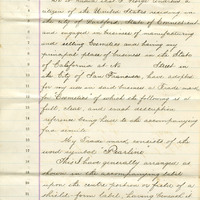 citizen of the United States residing in
the City of Hartford, State of Connecticut
and engaged in business of manufacturing
and selling Cosmetics and having my
principal place of business in the State
of California at No Street in
the City of San Francisco, have adopted
for my use in said business a Trade mark
for Cosmetics of which the following is a
full clear and exact description
reference being had to the accompanying
fac simile
My Trade mark consists of the
word symbol "Pearline
This I have generally arranged as
shown in the accompanying label
upon the centre portion or field of a
shield form label,